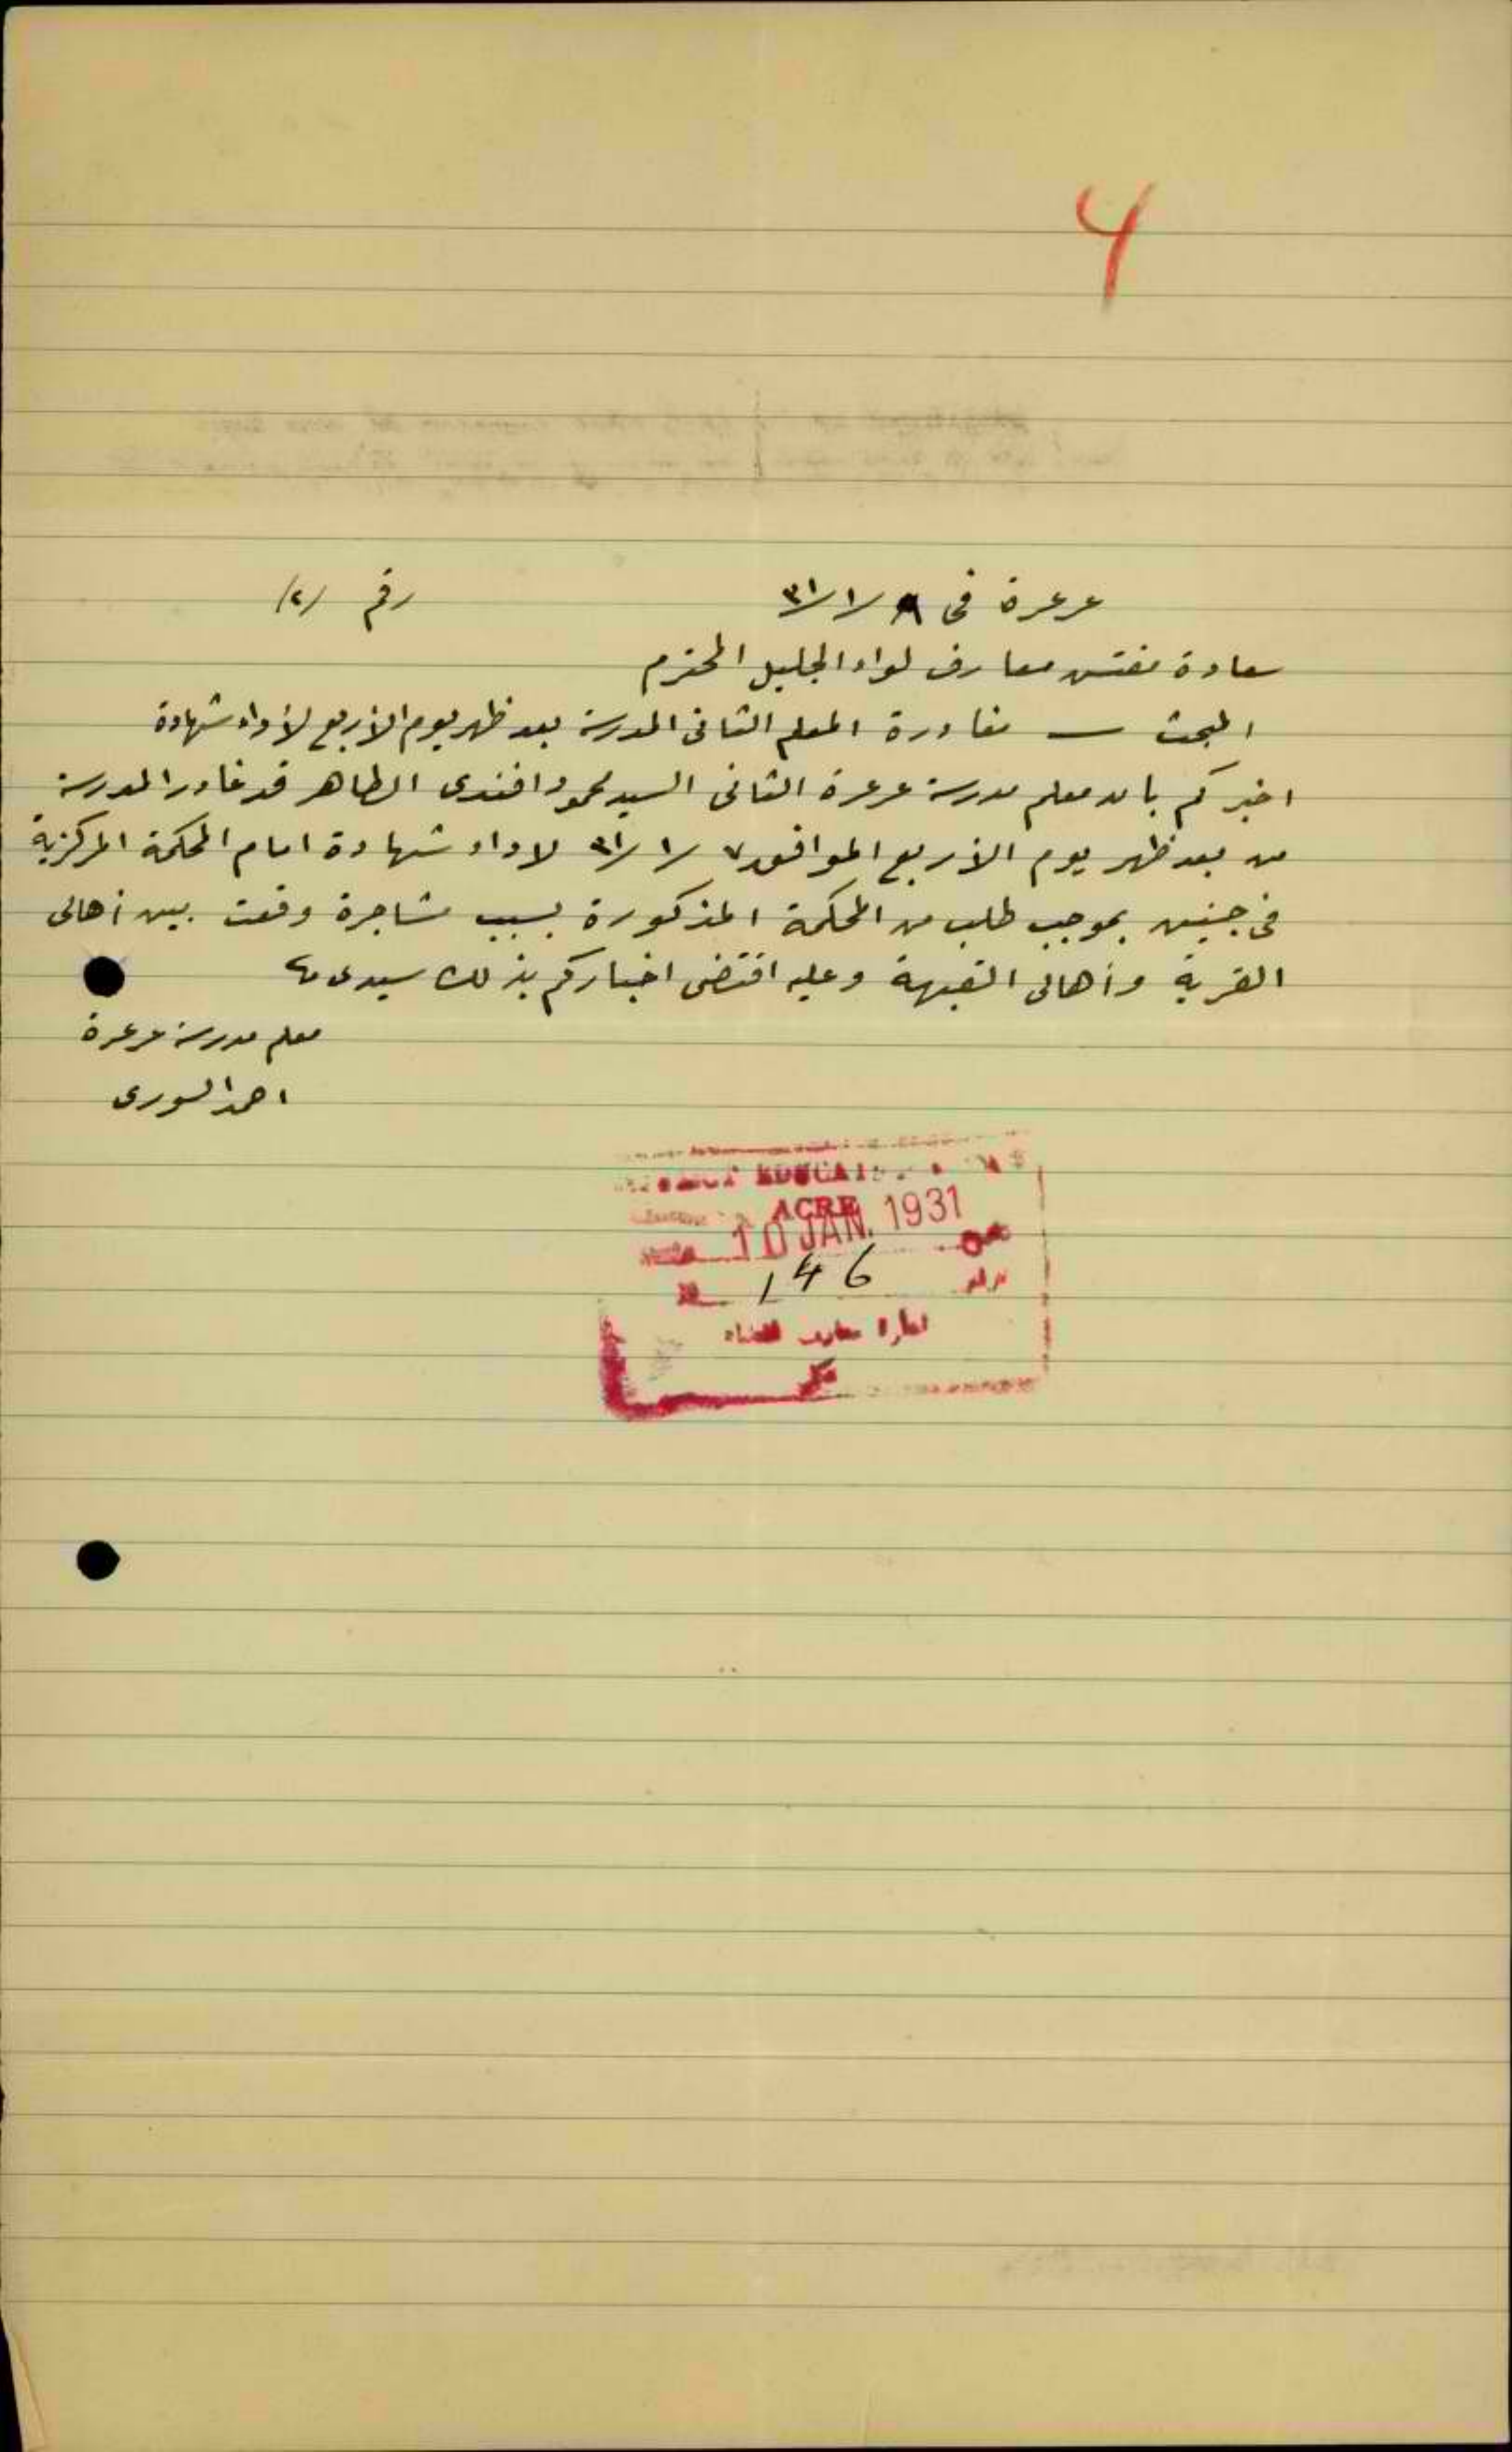 4
عرعرة فى ٨/١/٣١ رقم /٢/
سعادة مفتش معارف لواء الجليل المحترم
المبحث — مغادرة المعلم الثانى المدرسة بعد ظهر يوم الأربع لأداء شهادة
اخبركم بان معلم مدرسة عرعرة الثانى السيد محمود افندى الطاهر قد غادر المدرسة
من بعد ظهر يوم الأربع الموافق ٧/١/٣١ لاداء شهادة امام المحكمة المركزية
فى جنين بموجب طلب من المحكمة المذكورة بسبب مشاجرة وقعت بين أهالى
القرية وأهالى النقيهة وعليه اقتضى اخباركم بذلك سيدى
معلم مدرسة عرعرة
احمد السورى
ACRE
10 JAN. 1931
146
ادارة معارف القضاء
عكا